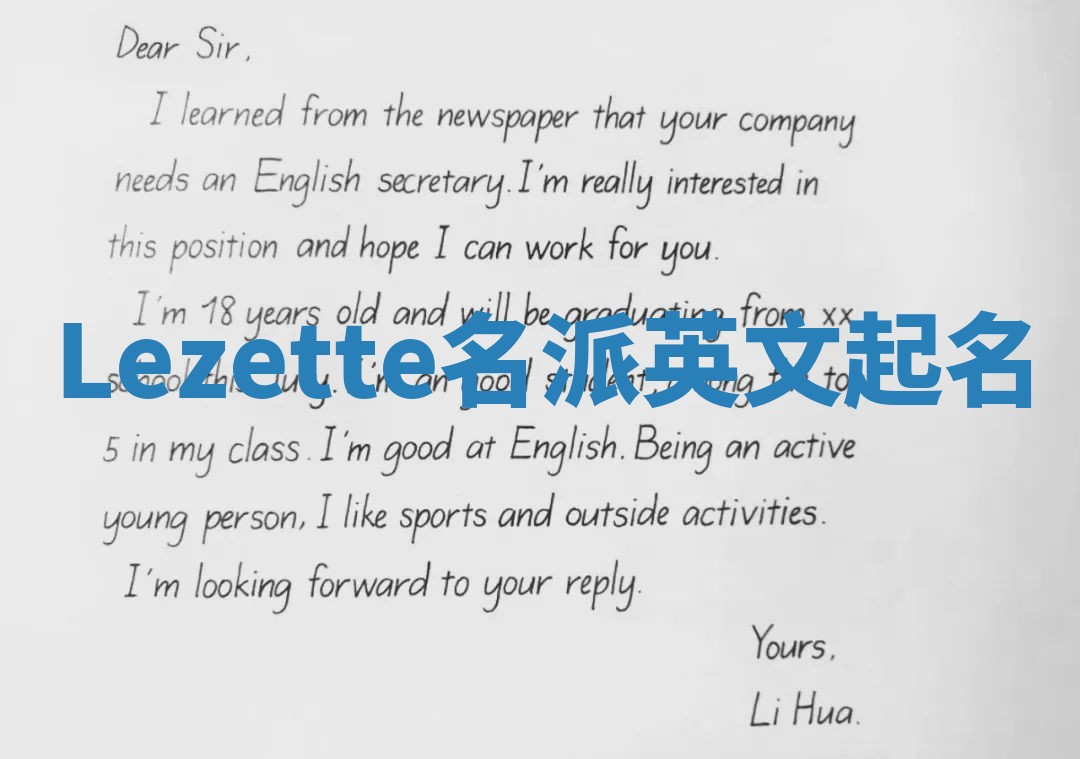 Dear Sir,
I learned from the newspaper that your company
needs an English secretary. I'm really interested in
this position and hope I can work for you.
I'm 18 years old and will be graduating from xx
Lezette名派英文起名
school this July. I'm an good student, among the top
5 in my class. I'm good at English. Being an active
young person, I like sports and outside activities.
I'm looking forward to your reply.
Yours,
Li Hua.